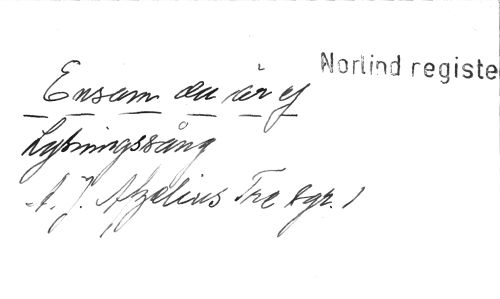 Norlind registe
Ensam du är ej
Lykningssång
A. J. Afzelius Tre sgr. 1